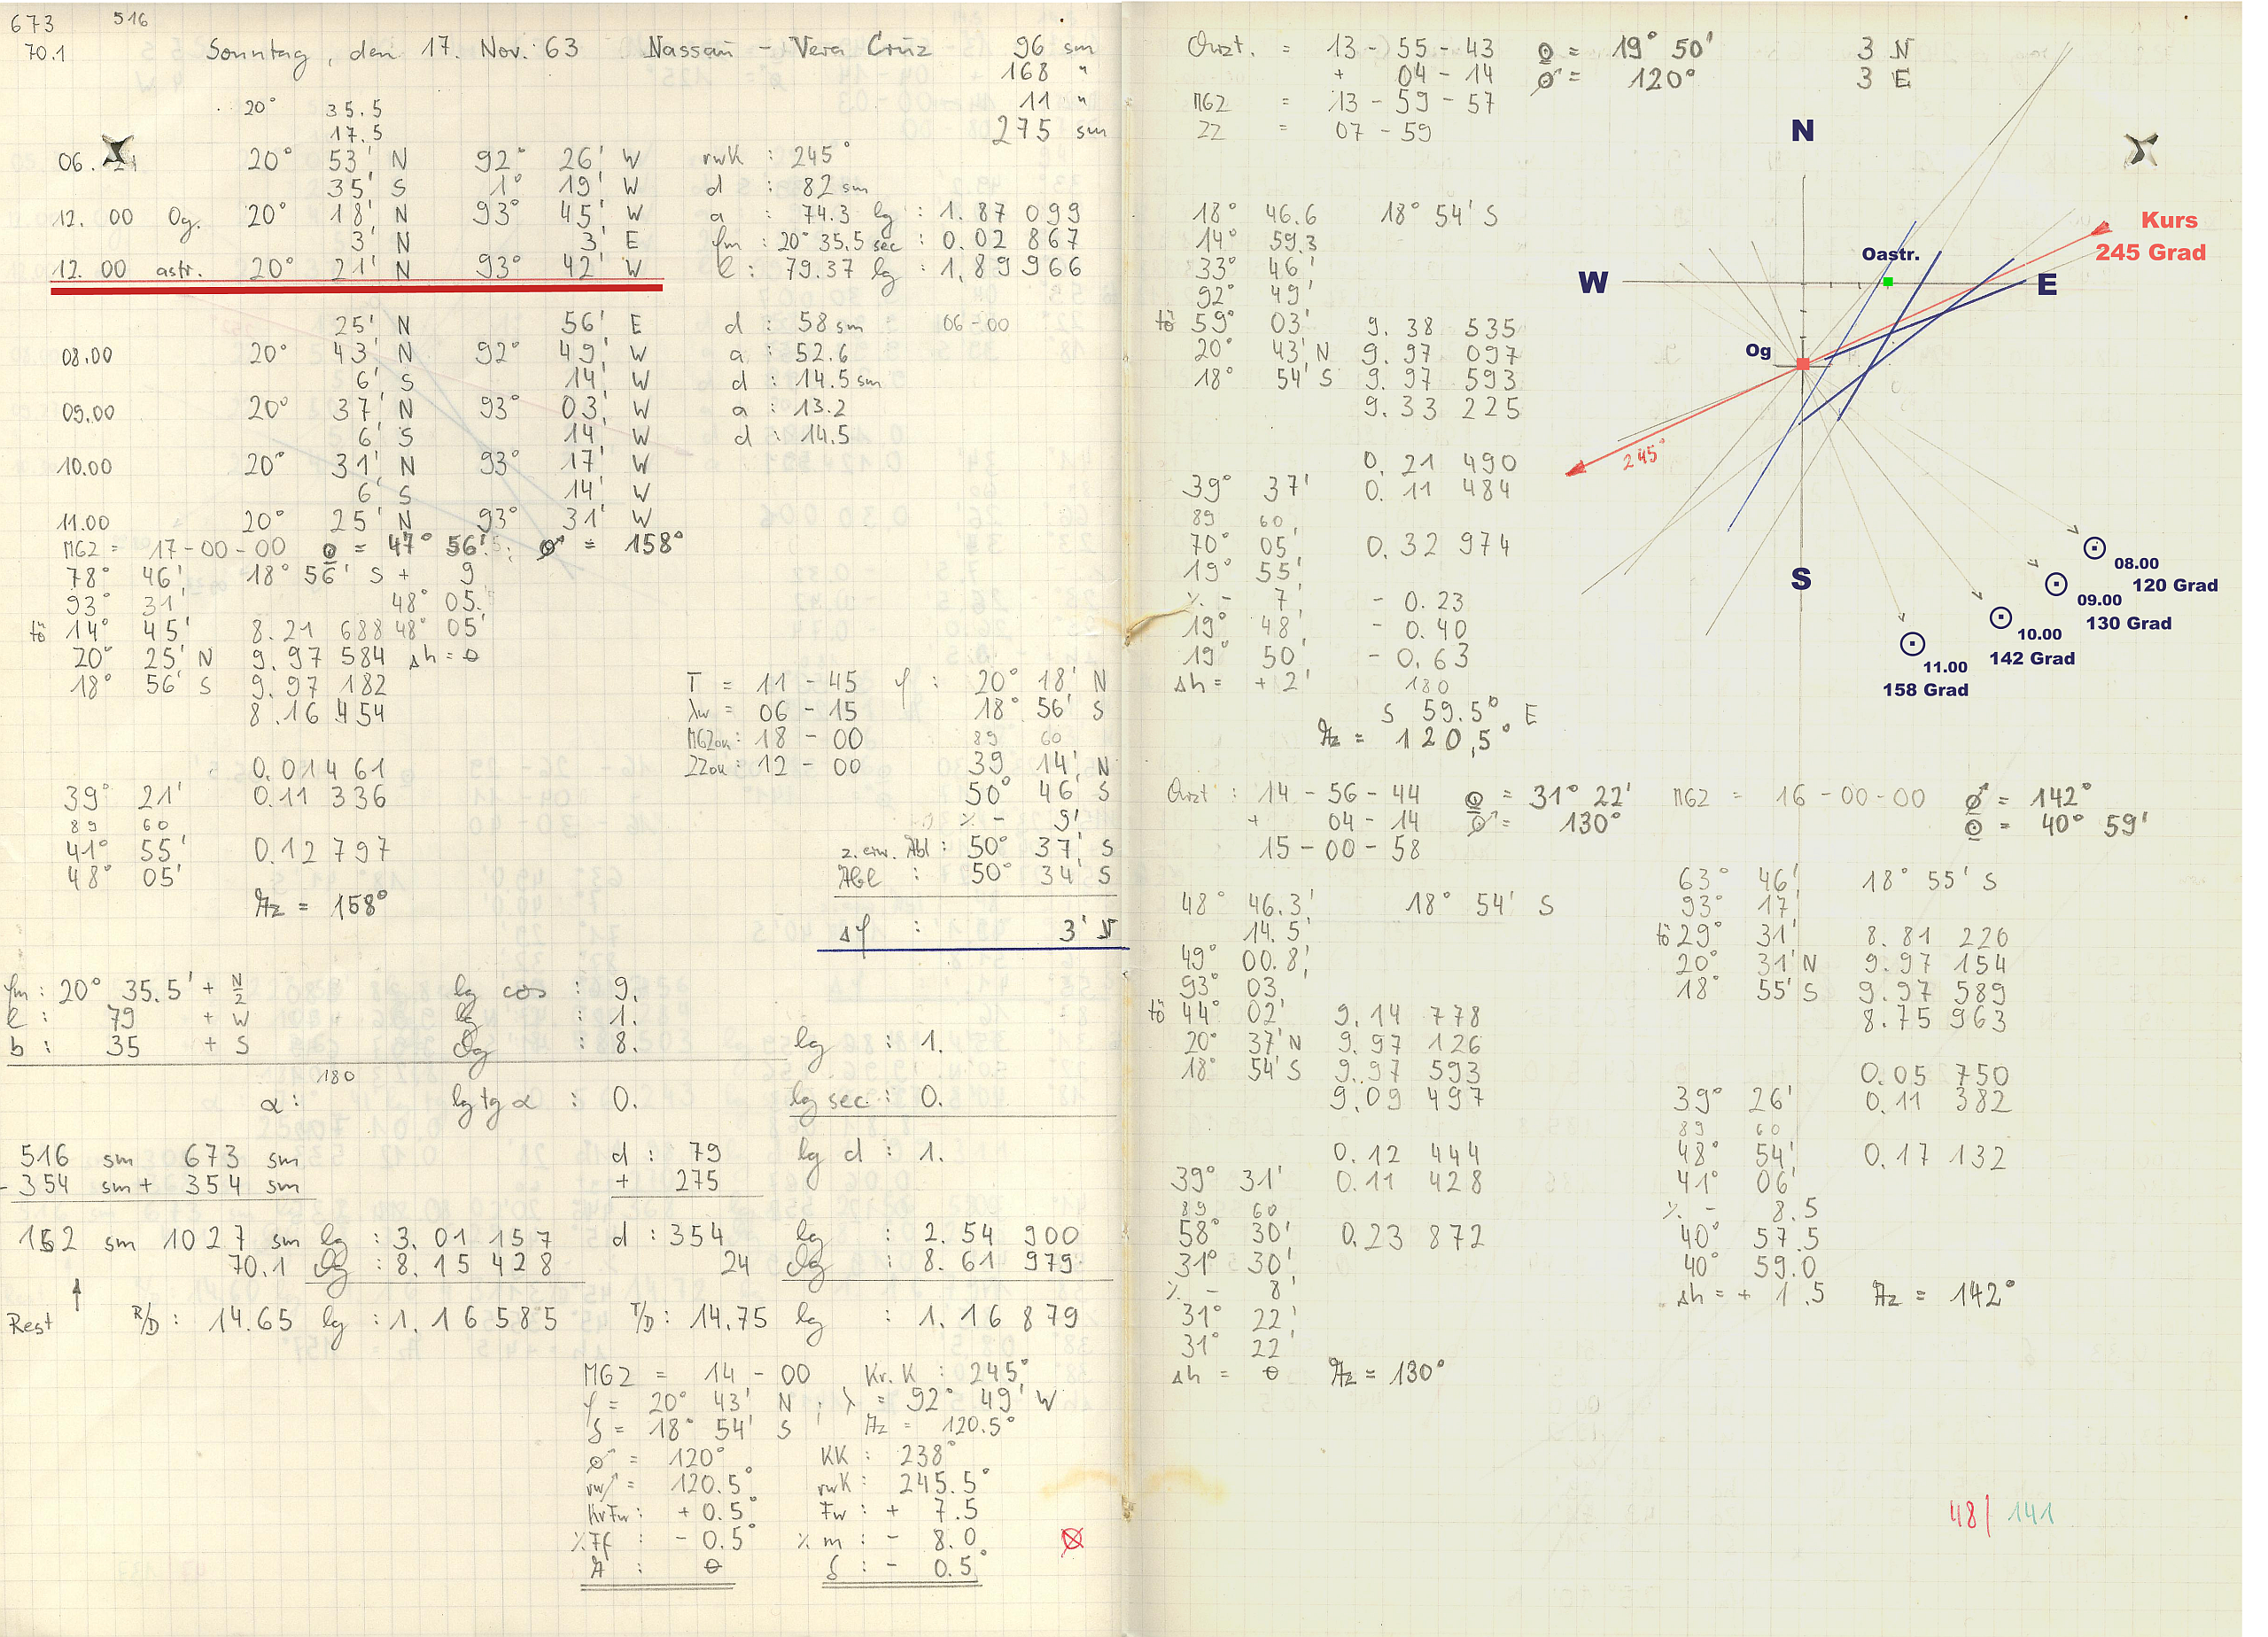 673 516
70.1 Sonntag, den 17. Nov. 63 Nassau - Vera Cruz 96 sm
168 "
11 "
275 sm
20° 35.5
17.5
06. 20° 53' N 92° 26' W rwK : 245°
35' S 1° 19' W d : 82 sm
12.00 Og. 20° 18' N 93° 45' W a : 74.3 lg : 1.87 099
3' N 3' E φm : 20° 35.5 sec : 0.02 867
12.00 astr. 20° 21' N 93° 42' W l : 79.37 lg : 1,89966
25' N 56' E d : 58 sm 06-00
08.00 20° 43' N 92° 49' W a : 52.6
6' S 14' W d : 14.5 sm
09.00 20° 37' N 93° 03' W a : 13.2
6' S 14' W d : 14.5
10.00 20° 31' N 93° 17' W
6' S 14' W
11.00 20° 25' N 93° 31' W
MGZ = 17-00-00 = 47° 56'.5; = 158°
78° 46' 18° 56' S + 9
93° 31' 48° 05'
14° 45' 8.21 688 48° 05'
20° 25' N 9.97 584 Δh = 0
18° 56' S 9.97 182
8.16 454
0.01461
39° 21' 0.11 336
89 60
41° 55' 0.12797
48° 05'
Az = 158°
T = 11-45 φ : 20° 18' N
λw = 06-15 18° 56' S
MGZou : 18-00 89 60
ZZou : 12-00 39 14' N
50° 46' S
% - 9'
z. erw. Abl : 50° 37' S
Abl : 50° 34' S
Δφ : 3' N
φm : 20° 35.5' + N/2 lg cos : 9.
l : 79 + W lg : 1.
b : 35 + S dg : 8. lg : 1.
180
α : lg tg α : 0. lg sec : 0.
516 sm 673 sm d : 79 lg d : 1.
- 354 sm + 354 sm + 275
162 sm 1027 sm lg : 3.01 157 d : 354 lg : 2.54 900
70.1 dg : 8.15 428 24 dg : 8.61 979
Rest R/D : 14.65 lg : 1.16585 T/D : 14.75 lg : 1.16 879
MGZ = 14-00 Kr.K : 245°
φ = 20° 43' N ; λ = 92° 49' W
δ = 18° 54' S Az = 120.5°
= 120° KK : 238°
rw = 120.5° rwK : 245.5°
KrFw : + 0.5° Fw : + 7.5
%Ff : - 0.5° % m : - 8.0
A : 0 δ : - 0.5°
Ouzt. = 13-55-43 = 19° 50' 3 N
+ 04-14 = 120° 3 E
MGZ = 13-59-57
ZZ = 07-59
18° 46.6 18° 54' S
14° 59.3
33° 46'
92° 49'
59° 03' 9.38 535
20° 43' N 9.97 097
18° 54' S 9.97 593
9.33 225
0.21 490
39° 37' 0.11 484
89 60
70° 05' 0.32 974
19° 55'
% - 7' - 0.23
19° 48' - 0.40
19° 50' - 0.63
Δh = + 2' 180
S 59.5° E
Az = 120,5°
N
W
E
S
Oastr.
Og
Kurs
245 Grad
245°
08.00
120 Grad
09.00
130 Grad
10.00
142 Grad
11.00
158 Grad
Ouzt : 14-56-44 = 31° 22'
+ 04-14 = 130°
15-00-58
48° 46.3' 18° 54' S
14.5'
49° 00.8'
93° 03'
44° 02' 9.14 778
20° 37' N 9.97 126
18° 54' S 9.97 593
9.09 497
0.12 444
39° 31' 0.11 428
89 60
58° 30' 0.23 872
31° 30'
% - 8'
31° 22'
31° 22'
Δh = 0 Az = 130°
MGZ = 16-00-00 = 142°
= 40° 59'
63° 46' 18° 55' S
93° 17'
29° 31' 8.81 220
20° 31' N 9.97 154
18° 55' S 9.97 589
8.75 963
0.05 750
39° 26' 0.11 382
89 60
48° 54' 0.17 132
41° 06'
% - 8.5
40° 57.5
40° 59.0
Δh = + 1.5 Az = 142°
48 | 141